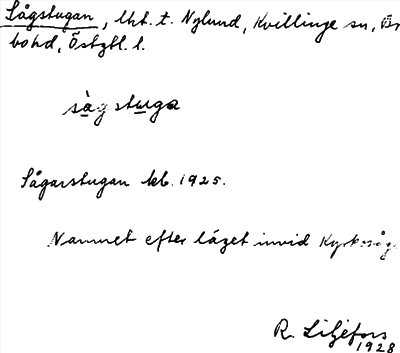 Sågstugan, lht. t. Nylund, Kvillinge sn,
bohd, Östgtl. l.
sågstuga
Sågarstugan kb. 1925.
Namnet efter läget invid
R. Liljefors
1928